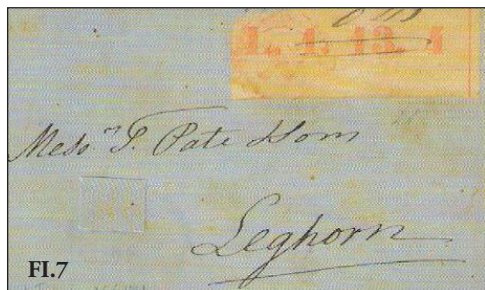 L. 1. 13. 4
Mess.rs T. Pate & Sons
Leghorn
FI.7